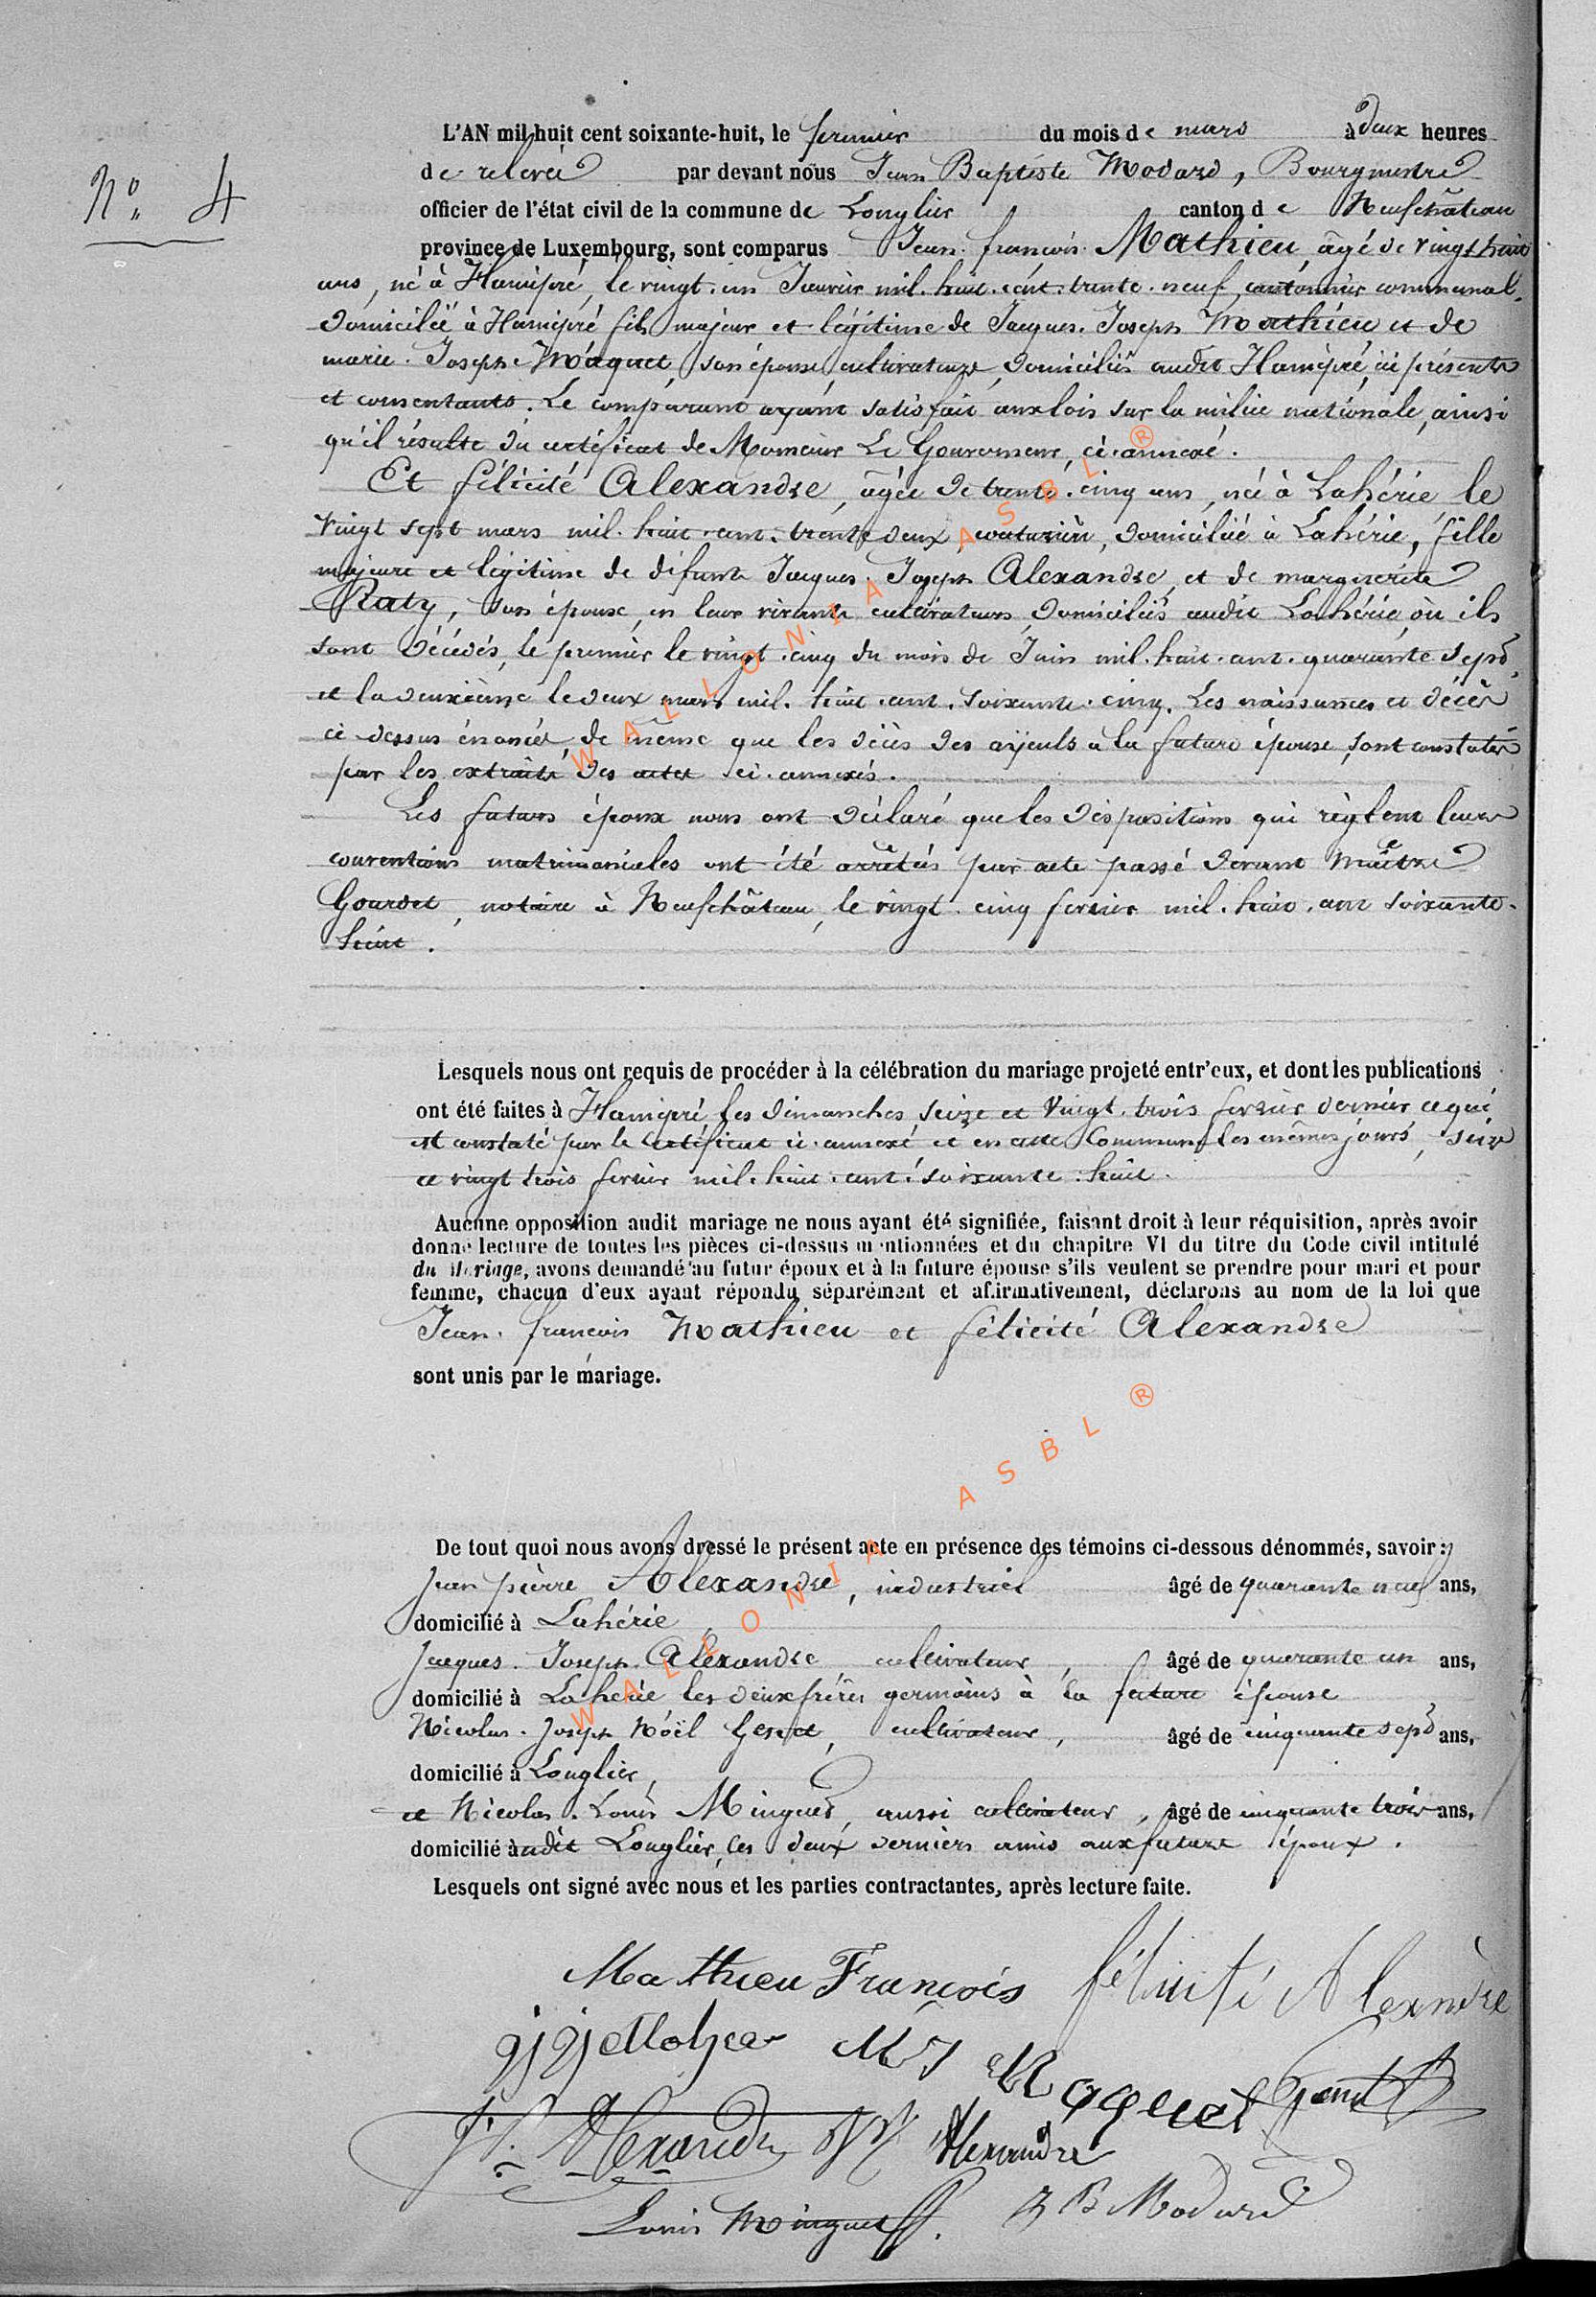 N° 4
L'AN mil huit cent soixante-huit, le premier du mois de mars à deux heures
de relevée par devant nous Jean Baptiste Modard, Bourgmestre
officier de l'état civil de la commune de Longlier canton de Neufchâteau
province de Luxembourg, sont comparus Jean-françois Mathieu, âgé de vingt huit
ans, né à Hamipré, le vingt-un Janvier mil-huit-cent-trente-neuf, cantonnier communal,
domicilié à Hamipré fils majeur et légitime de Jacques-Joseph Mathieu et de
marie-Joseph Maquet, son épouse, cultivateurs, domiciliés audit Hamipré, ici présents
et consentants. Le comparant ayant satisfait aux lois sur la milice nationale, ainsi
qu'il résulte du certificat de Monsieur Le Gouverneur, ci-annexé.
Et félicité Alexandre, âgée de trente-cinq ans, née à Lahérie le
vingt sept mars mil-huit-cent-trente deux, couturière, domiciliée à Lahérie, fille
majeure et légitime de défunts Jacques-Joseph Alexandre, et de marguerite
Raty, son épouse, en leur vivant cultivateurs, domiciliés audit Lahérie, où ils
sont décédés, le premier le vingt-cinq du mois de Juin mil-huit-cent-quarante sept,
et la deuxième le deux mars mil-huit-cent-soixante-cinq. Les naissances et décès
ci-dessus énoncés, de même que les décès des aïyeuls à la future épouse, sont constatés
par les extraits des actes ci-annexés.
Les futurs époux nous ont déclaré que les dispositions qui règlent leurs
conventions matrimoniales ont été arrêtées par acte passé devant maître
Gourdet, notaire à Neufchâteau, le vingt-cinq fevrier mil-huit-cent soixante-
huit.
Lesquels nous ont requis de procéder à la célébration du mariage projeté entr'eux, et dont les publications
ont été faites à Hamipré les dimanches seize et vingt-trois fevrier dernier ce qui
est constaté par le certificat ci-annexé et en cette Commune les mêmes jours, seize
et vingt trois fevrier mil-huit-cent-soixante-huit.
Aucune opposition audit mariage ne nous ayant été signifiée, faisant droit à leur réquisition, après avoir
donné lecture de toutes les pièces ci-dessus mentionnées et du chapitre VI du titre du Code civil intitulé
du Mariage, avons demandé au futur époux et à la future épouse s'ils veulent se prendre pour mari et pour
femme, chacun d'eux ayant répondu séparément et affirmativement, déclarons au nom de la loi que
Jean-francois Mathieu et félicité Alexandre
sont unis par le mariage.
De tout quoi nous avons dressé le présent acte en présence des témoins ci-dessous dénommés, savoir:
Jean pièrre Alexandre, industriel âgé de quarante neuf ans,
domicilié à Lahérie,
Jacques-Joseph-Alexandre cultivateur, âgé de quarante un ans,
domicilié à Lahérie les deux frères germains à la future épouse
Nicolas-Joseph Noël Genet, cultivateur, âgé de cinquante sept ans,
domicilié à Longlier,
et Nicolas-Louis Minguet, aussi cultivateur, âgé de cinquante trois ans,
domicilié audit Longlier, les deux derniers amis aux futurs époux.
Lesquels ont signé avec nous et les parties contractantes, après lecture faite.
Mathieu François félicité Alexandre
M J Maquet Genet
J. P. Alexandre Alexandre
Louis Minguet J B Modard
WALLONIA ASBL ®
WALLONIA ASBL ®